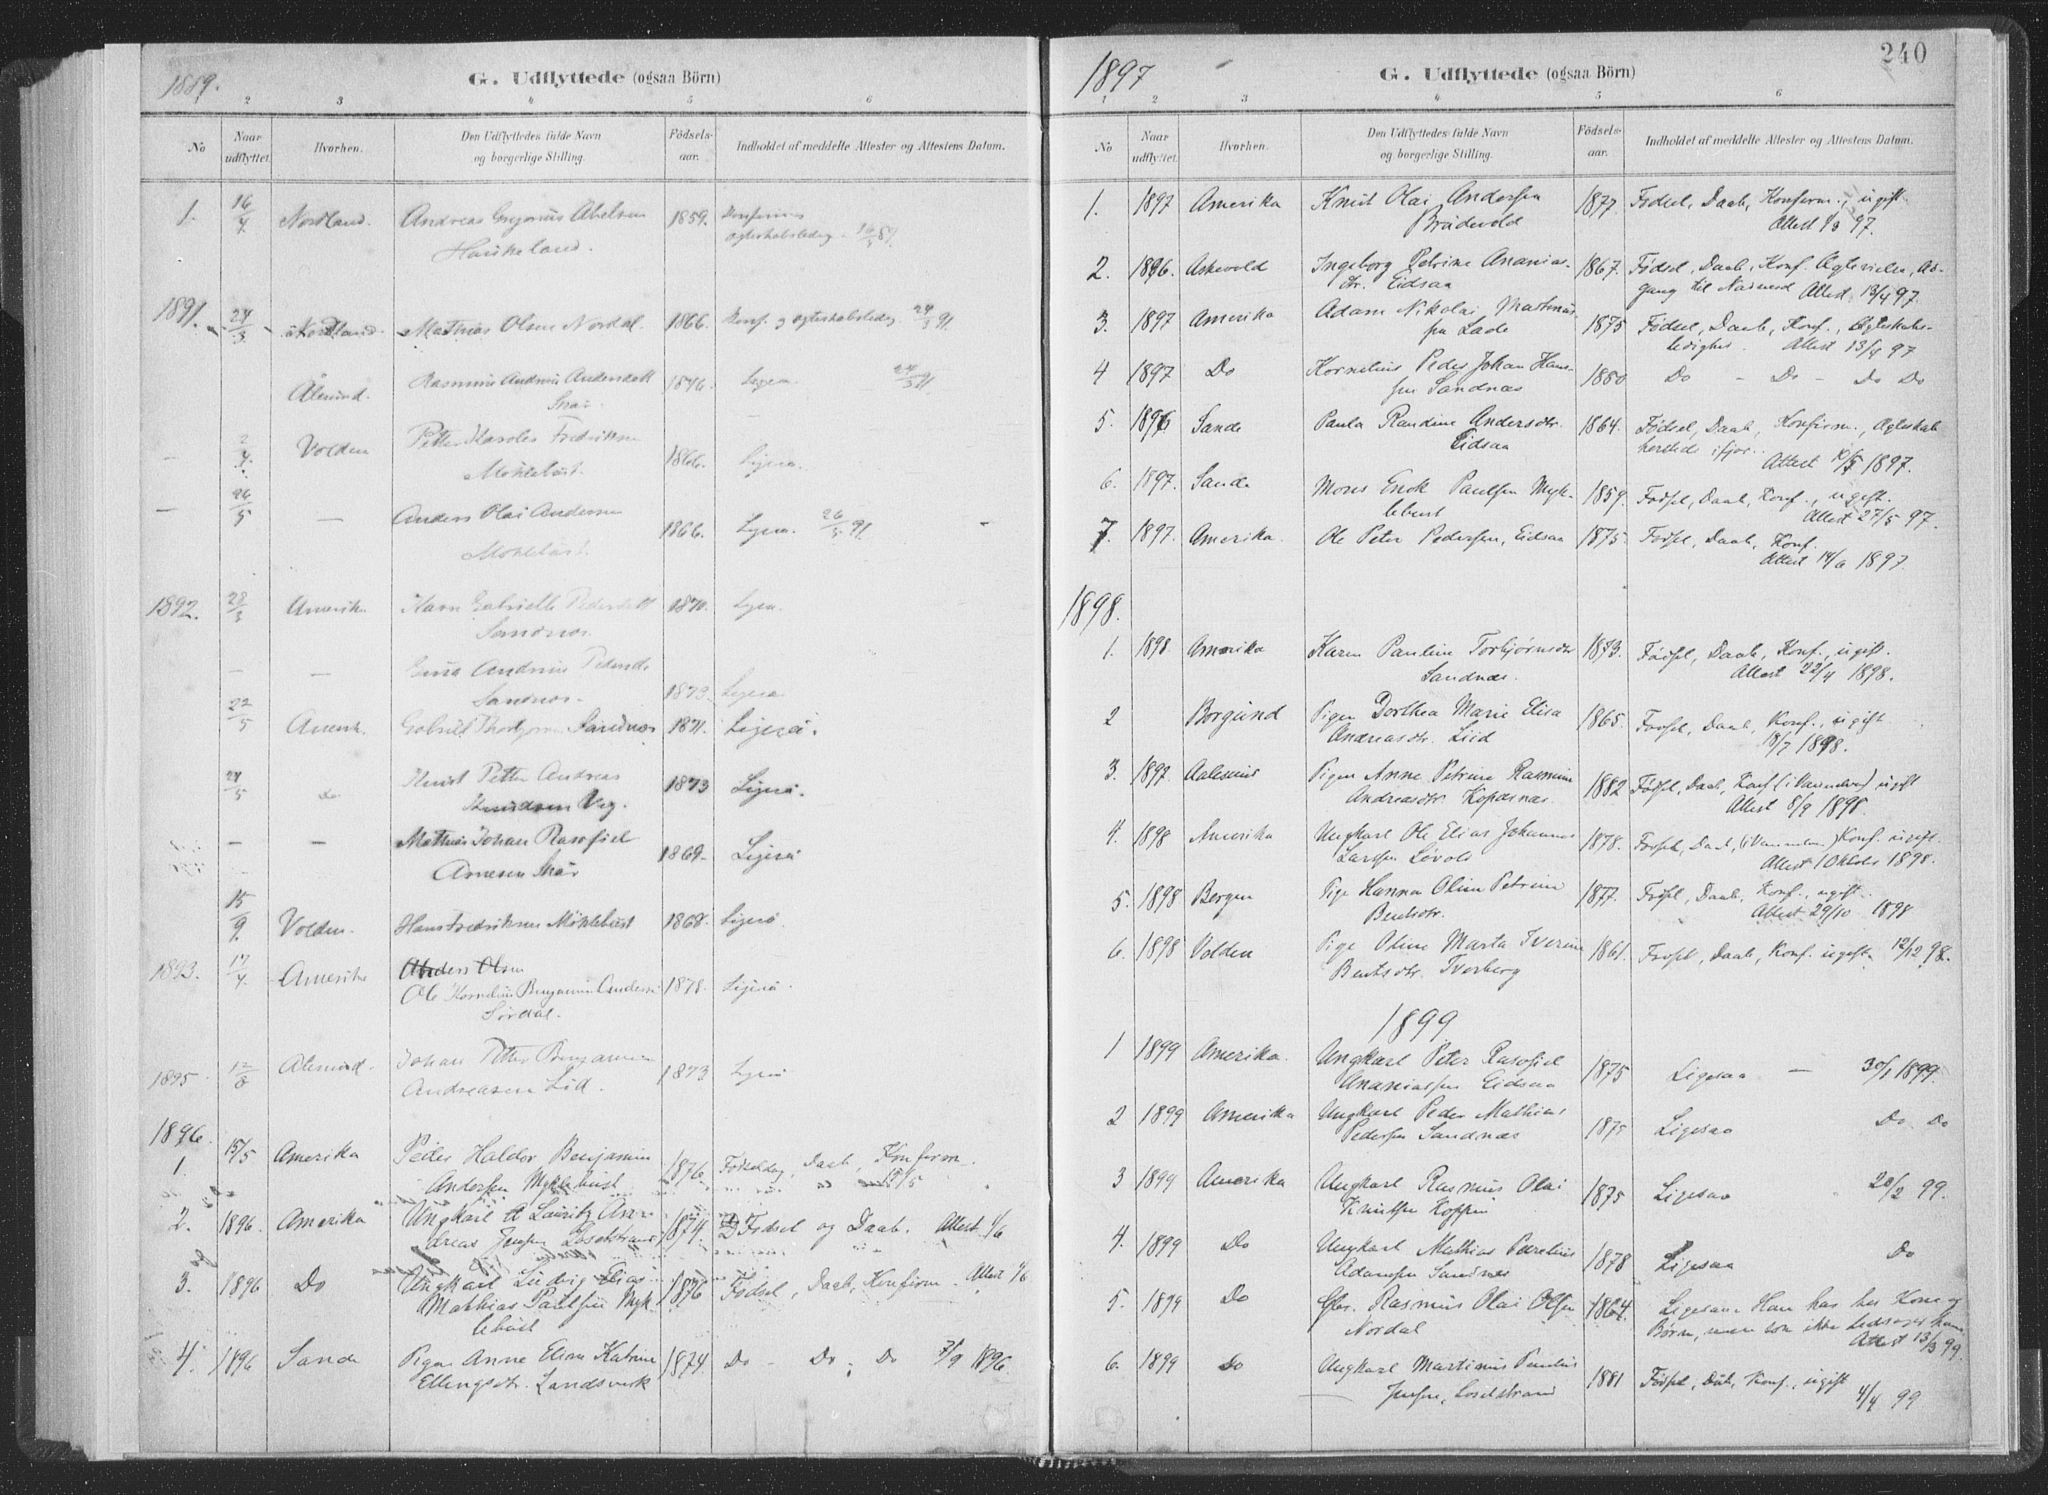 1889.
G. Udflyttede (ogsaa Börn)
1 2 3 4 5 6
No
Naar udflyttet.
Hvorhen.
Den Udflyttedes fulde Navn
og borgerlige Stilling.
Födsels-
aar.
Indholdet af meddelte Attester og Attestens Datum.
1. 16/4 Nordland. Andreas Abelsen 1859.
Haukeland.
1891. 24/3 Nordland. Mathias Olsen Nordal. 1866. Konf. og ægteskabsledig 24/3 91.
Ålesund. Rasmus Andrea Andersdtt 1846. Ligesa. 24/3 91.
2/4. Volden Petter Karolus Fredriksen
Möklebust. 1866. Ligesa.
— 26/5 — Anders Olai Andersen
Möklebust. 1866. Ligesa. 26/5 91
1892. 28/3 Amerika Gabrielle Pedersdtt 1870. Ligesa.
Sandnæs.
— —
Sandnæs. 1873. Ligesa
22/5 Amerik. Gabriel Sandnæs 1871. Ligeså.
24/5 do Knut Petter Andreas
Knudsen Vig. 1873 Ligeså.
— — Mathias Johan Rasofiel
Arnesen Skår 1869. Ligeså
15/9. Volden. Hans Fredriksen Möklebust 1868. Ligeså
1893. 17/4. Amerika Anders Olsen
Ole Kornelius Benjamin Anders. 1878. Ligeså.
Sördal.
1895 12/8 Ålesund. Johan Petter Benjamin
Andreasen Lid. 1873 Ligeså
1896.
1. 15/5 Amerika Peder Haldor Benjamin
Andersen Myklebust 1876. Födseldag, Daab, Konfirm.
15/5
2. 1896. Amerika Ungkarl Lauritz And-
reas Jensen Losetstrand 1874. Födsel og Daab. Attest 1/6
3. 1896 Do Ungkarl Ludvig Elias
Mathias Paulsen Myk-
lebust 1876 Födsel, Daab, Konfirm. Attest 1/6
4. 1896 Sande Pigen Anne Elise Katrine
Ellingsdtr. Landsverk 1874. Do - Do, Do 7/9 1896.
1897
G. Udflyttede (ogsaa Börn)
240
1 2 3 4 5 6
No
Naar udflyttet.
Hvorhen.
Den Udflyttedes fulde Navn
og borgerlige Stilling.
Födsels-
aar.
Indholdet af meddelte Attester og Attestens Datum.
1. 1897 Amerika Knut Olai Andersen
Brudevold 1877. Födsel, Daab, Konfirm., ugift.
Attest 1/3 97.
2. 1896. Askevold Ingeborg Petrine Ananias-
dtr. Eidsaa 1867. Födsel, Daab, Konf. Ægtevielse, Ad-
gang til Nadverd Attest 13/4 97.
3. 1897 Amerika Adam Nikolai Martinus-
sen Lade 1875 Födsel, Daab, Konf., Ægteskabs-
ledighed. Attest 13/4 97
4 1897 Do Kornelius Peder Johan Han-
sen Sandnæs 1880 Do - Do - Do Do
5. 1896 Sande Paula Randine Andersdtr.
Eidsaa 1864. Födsel, Daab, Konfirm., Ægteskab
herstede ifjor. Attest 10/5 1897.
6. 1897. Sande Mons Enok Paulsen Myk-
lebust 1859. Födsel, Daab, Konf., ugift.
Attest 27/5 97.
7. 1897. Amerika. Ole Peter Pedersen, Eidsaa 1875. Födsel, Daab, Konf.
Attest 14/6 1897.
1898.
1. 1898 Amerika Karen Pauline Torbjörnsdtr
Sandnæs. 1873. Födsel, Daab, Konf., ugift.
Attest 22/4 1898.
2 Borgund Pigen Dorthea Marie Elisa
Andreasdtr. Liid 1865. Födsel, Daab, Konf., ugift
18/7 1898.
3. 1897. Aalesund Pigen Anne Petrine Rasmine
Andreasdtr. Kopasnæs. 1882 Födsel, Daab, Konf (i Vannelven) ugift
Attest 8/9 1898.
4. 1898 Amerika Ungkarl Ole Elias Johannes
Larssen Lövold 1878. Födsel, Daab, (i Vannelven) Konf. ugift.
Attest 1 Oktober 1898.
5. 1898 Bergen Pige Hanna Oline Petrine
Bentsdtr. 1877. Födsel, Daab, Konf., ugift.
Attest 29/10 1898
6. 1898 Volden Pige Oline Marta Iverine
Bentsdtr. Tverberg 1861. Födsel, Daab, Konf. ugift. 12/12 98.
1899
1 1899 Amerika. Ungkarl Peter Rasofiel
Ananiassen Eidsaa 1875 Ligesaa — 30/1 1899.
2 1899 Amerika Ungkarl Peder Mathias
Pedersen Sandnæs 1875 Ligesaa Do. Do
3 1899 Amerika Ungkarl Rasmus Olai
Knutsen Koppen 1875 Ligesaa 20/2 99.
4. 1899 Do Ungkarl Mathias Parelius
Adamsen Sandnæs 1878 Ligesaa Do
5. 1899 Do Rasmus Olai Olsen
Nordal 1864. Ligesaa. Han har her Kone og
Börn, men som ikke ledsager ham.
Attest 13/3 99.
6. 1899 Do Ungkarl Martinus Paulus
Jensen, Losetstrand 1881 Födsel, Dåb, Konf., ugift
4/4 99